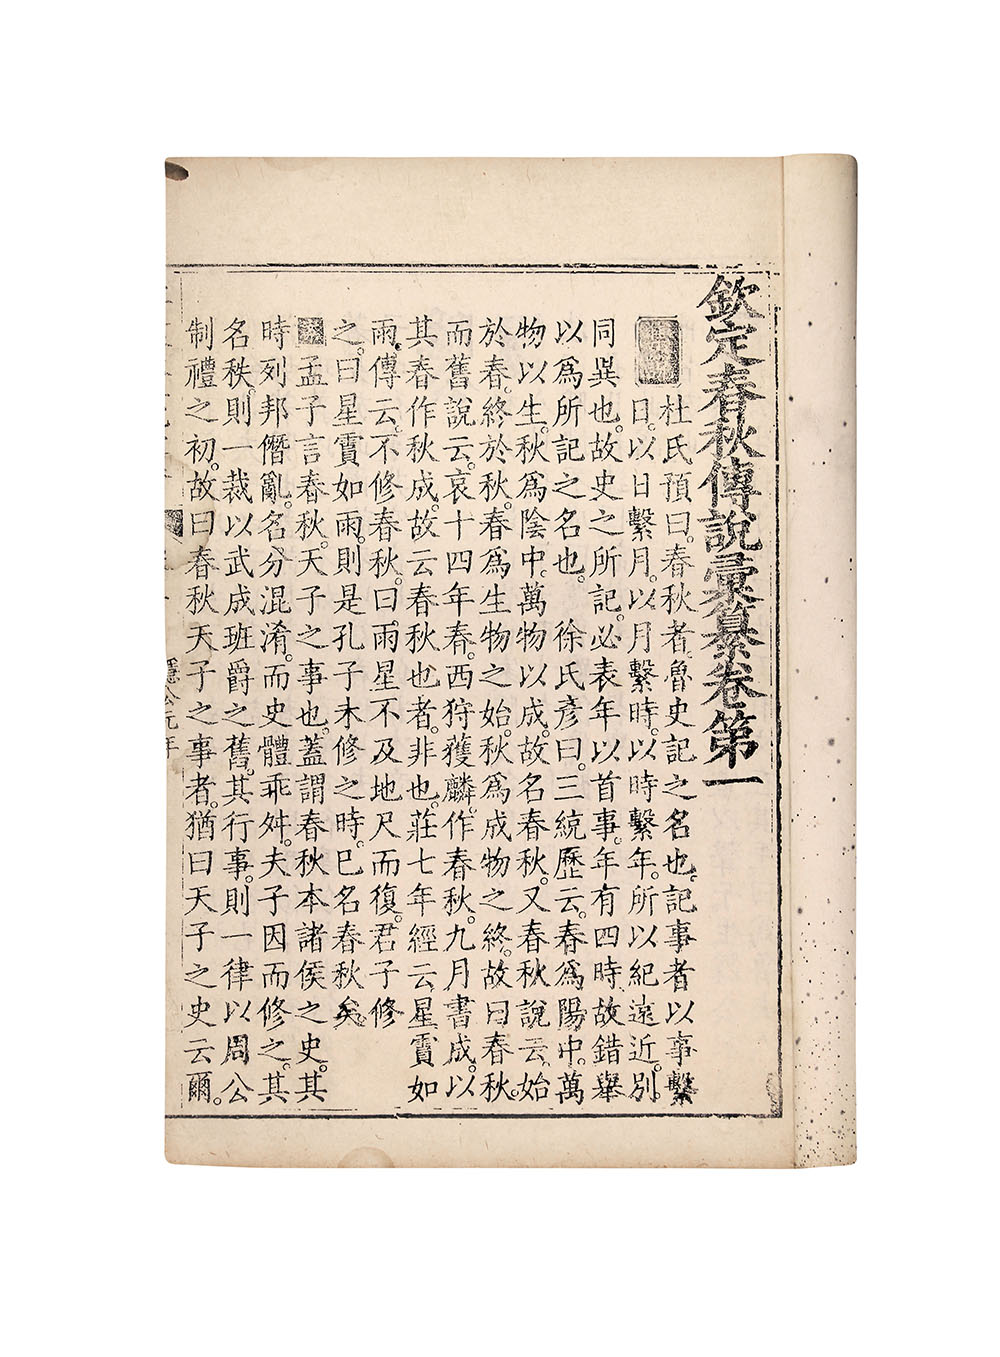 欽定春秋傳說彙纂卷第一
杜氏預曰。春秋者。魯史記之名也。記事者以事繫
日。以日繫月。以月繫時。以時繫年。所以紀遠近。別
同異也。故史之所記。必表年以首事。年有四時。故錯舉
以爲所記之名也。 徐氏彥曰。三統歷云。春爲陽中。萬
物以生。秋爲陰中。萬物以成。故名春秋。又春秋說云。始
於春。終於秋。春爲生物之始。秋爲成物之終。故曰春秋。
而舊說云。哀十四年春。西狩獲麟。作春秋。九月書成。以
其春作秋成。故云春秋也者。非也。莊七年經云。星霣如
雨。傳云。不修春秋。曰雨星不及地尺而復。君子修
之。曰星霣如雨。則是孔子未修之時。已名春秋矣。
孟子言春秋。天子之事也。蓋謂春秋本諸侯之史。其
時列邦僭亂。名分混淆。而史體乖舛。夫子因而修之。其
名秩。則一裁以武成班爵之舊。其行事。則一律以周公
制禮之初。故曰春秋天子之事者。猶曰天子之史云爾。
隱公元年